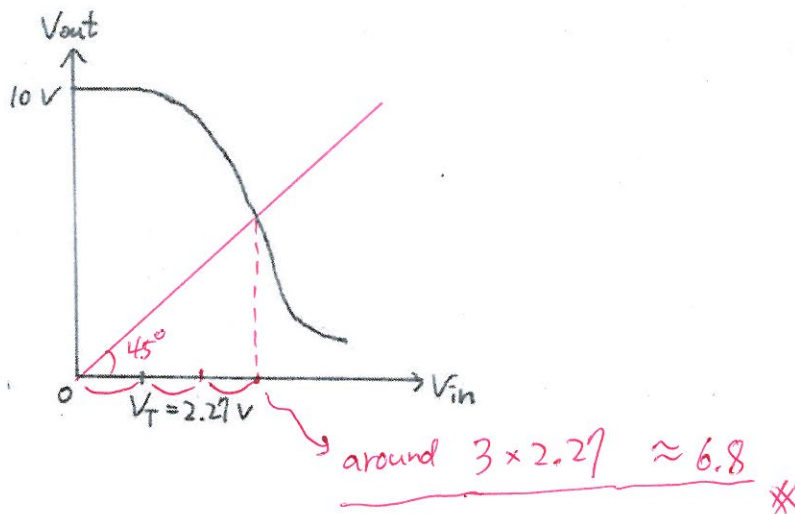 Vout
10 V
45°
0
V_T = 2.27 V
Vin
around 3 × 2.27 ≈ 6.8